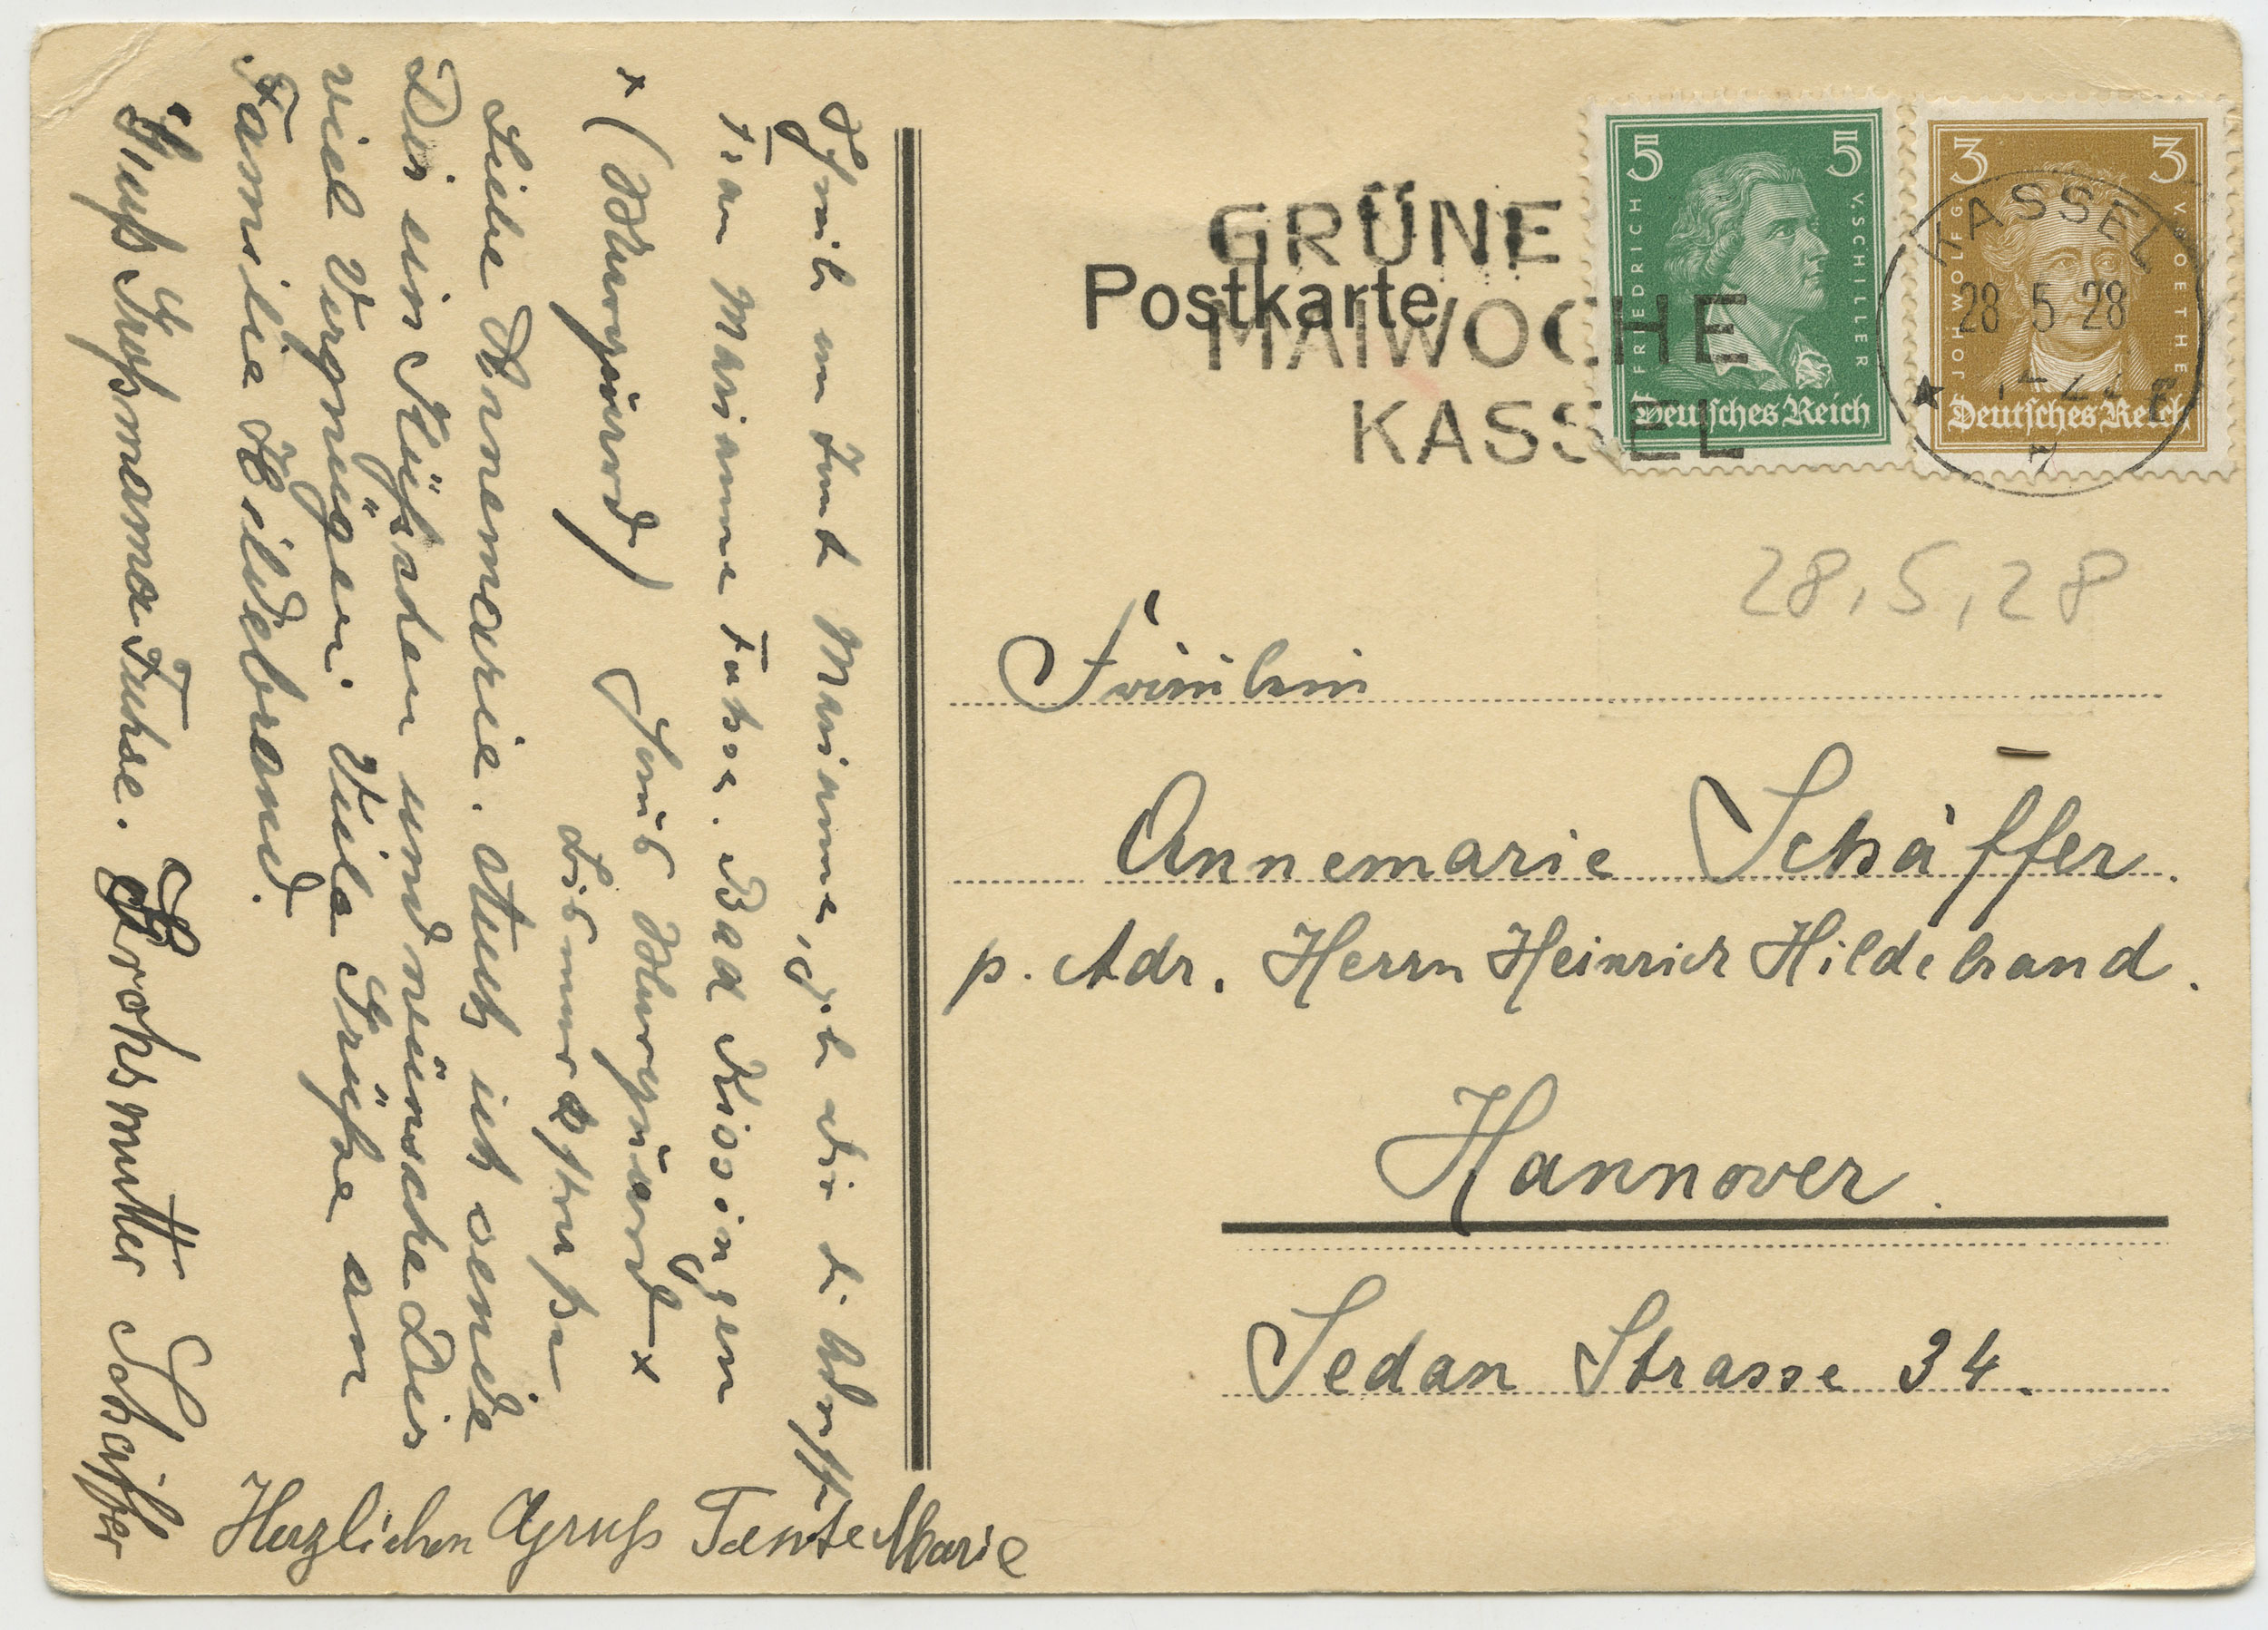 GRÜNE
Postkarte
MAIWOCHE
KASSEL
5 5
FRIEDRICH V. SCHILLER
Deutsches Reich
3 3
JOH WOLFG V. GOETHE
Deutsches Reich
KASSEL
28 5 28
28.5.28
Fräulein
Annemarie Schäffer.
p. Adr. Herrn Heinrich Hildebrand.
Hannover.
Sedan Strasse 34.
Marianne, gib dir die
Frau Marianne Fuhse. Bad Kissingen
Haus
x ( )
Liebe Annemarie. Auch ich sende
Dir ein Küßchen und wünsche Dir
viel Vergnügen. Viele Grüße an
Familie Hildebrand.
Gruß Großmama Fuhse. Grohsmutter Schäffer
Herzlichen Gruß Tante Marie